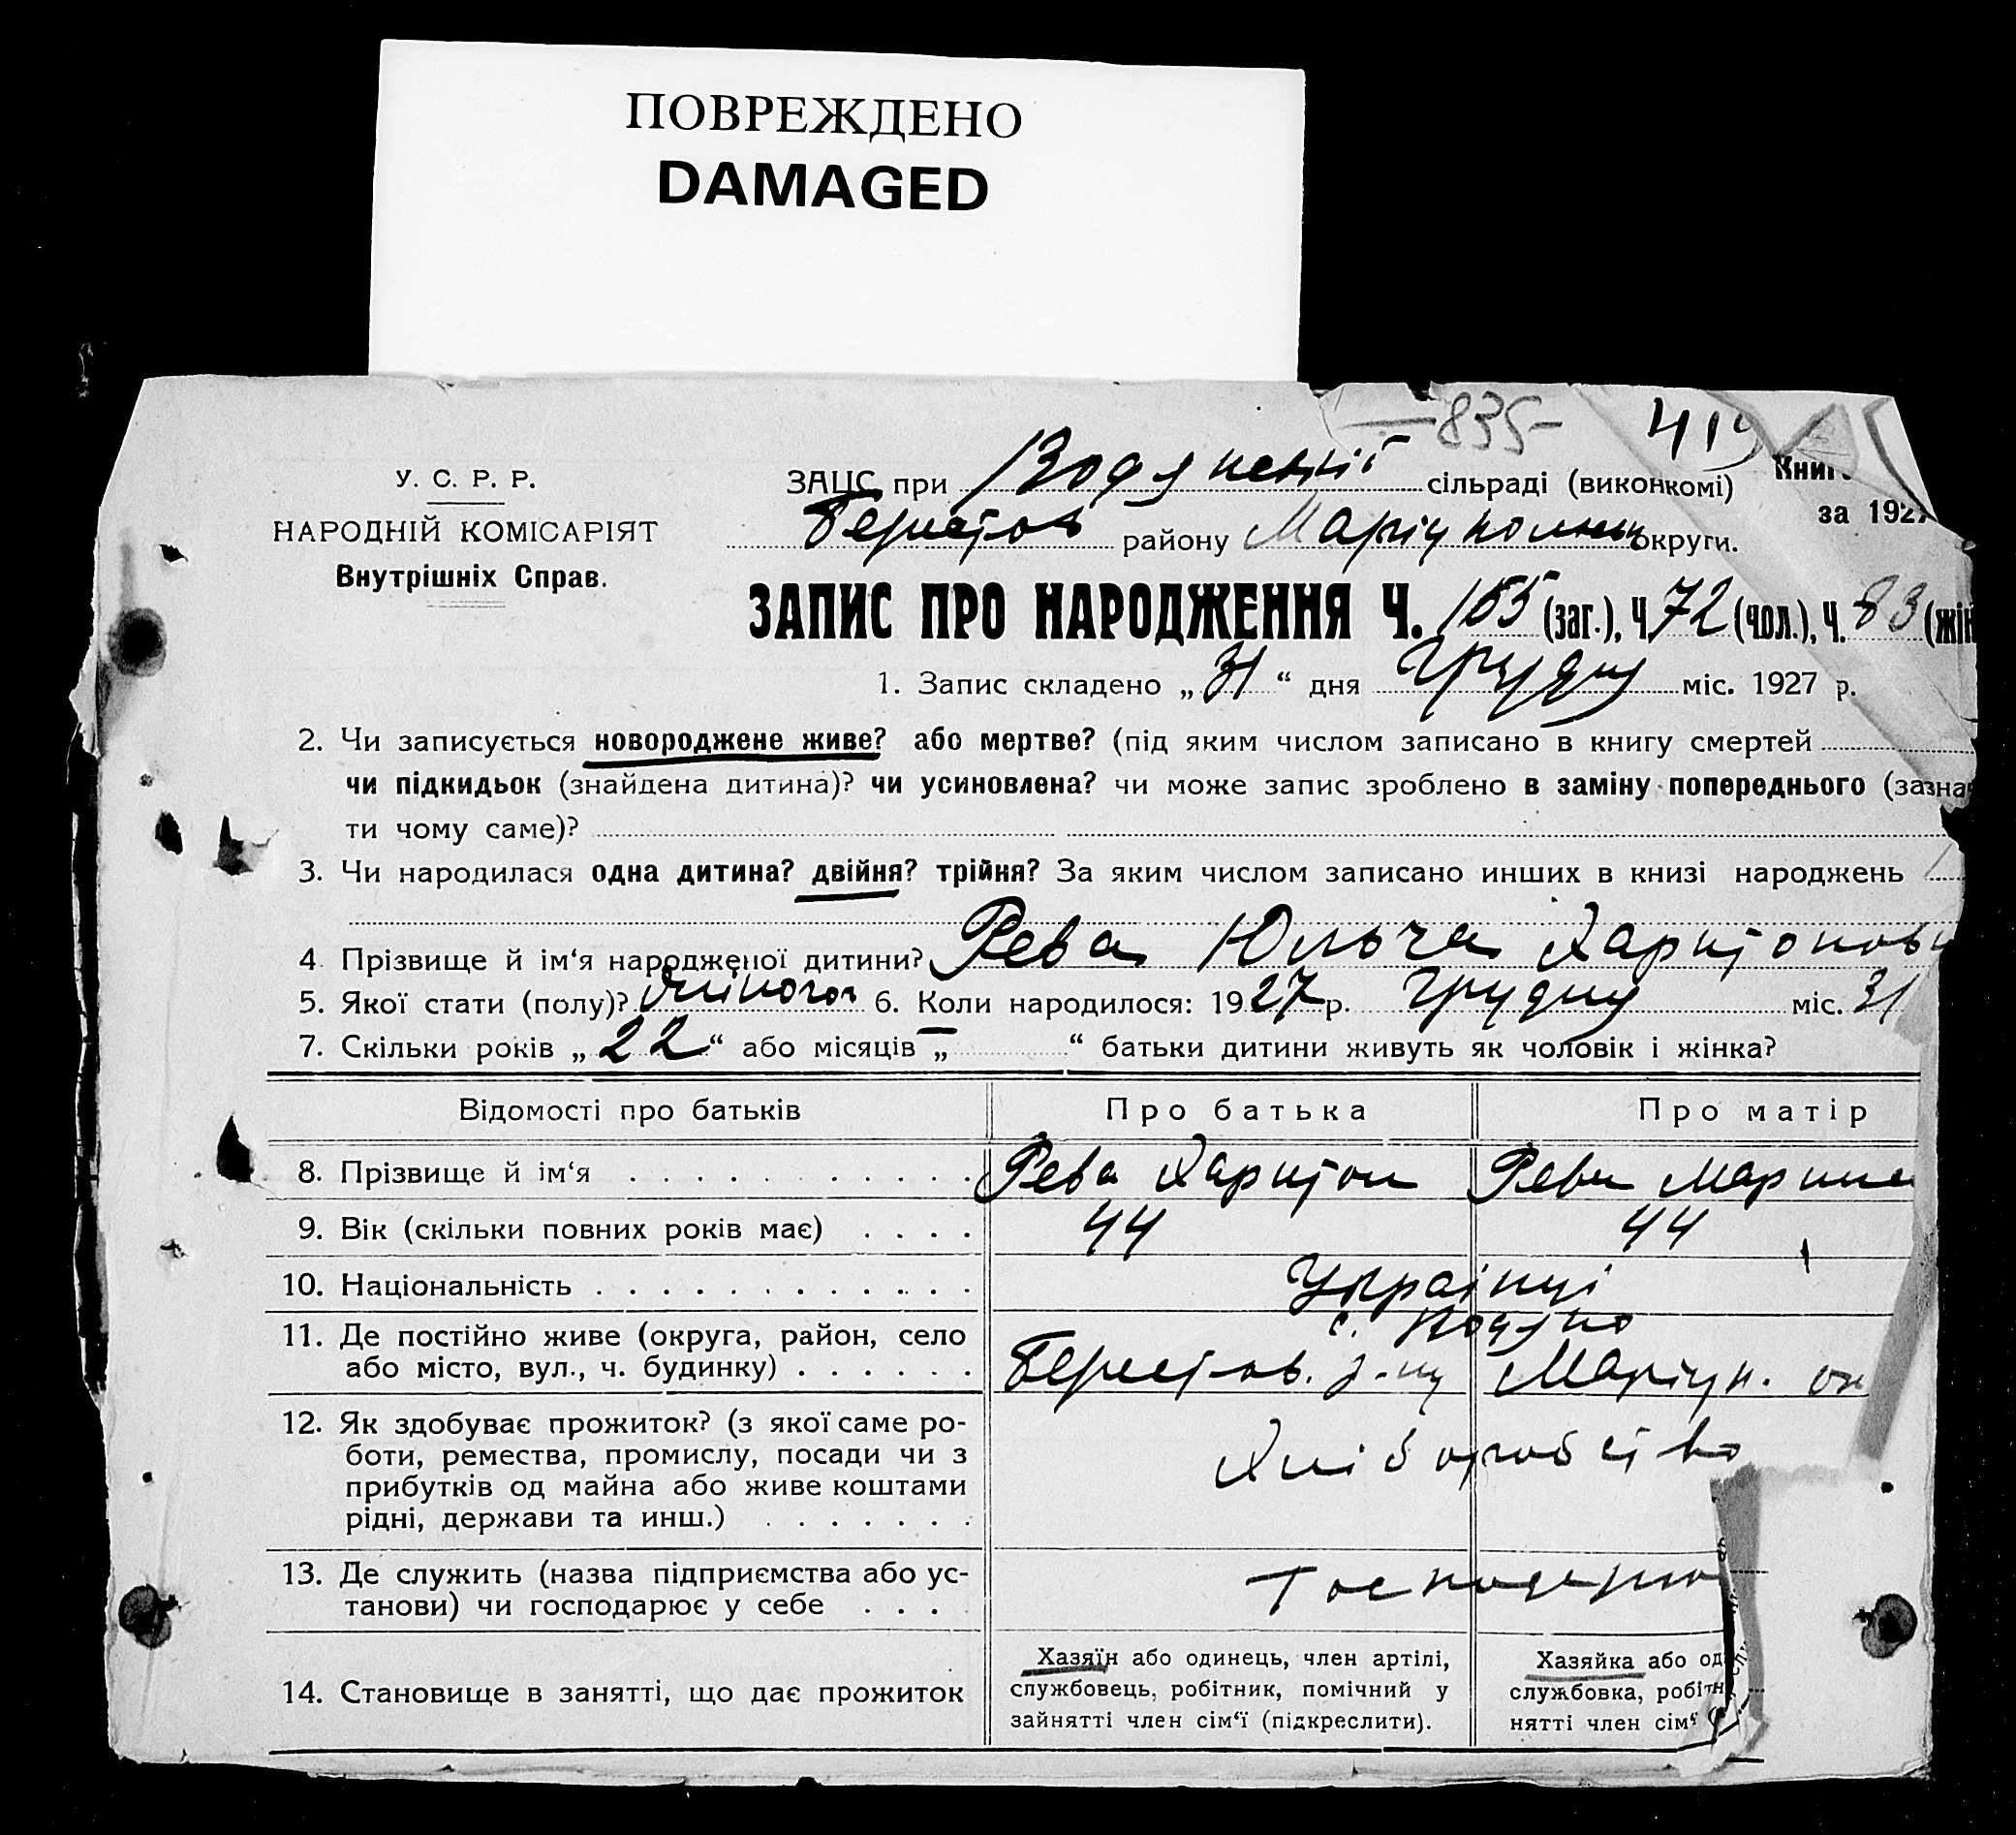 ПОВРЕЖДЕНО
DAMAGED
-835-
419
У. С. Р. Р.
НАРОДНІЙ КОМІСАРІЯТ
Внутрішніх Справ.
ЗАЦС при Водяненкії сільраді (виконкомі)
за 1927
Берестов району Маріупольськ округи.
ЗАПИС ПРО НАРОДЖЕННЯ Ч. 155 (заг.), Ч. 72 (чол.), Ч. 83 (жін
1. Запис складено „31“ дня Грудня міс. 1927 р.
2. Чи записується новороджене живе? або мертве? (під яким числом записано в книгу смертей
чи підкидьок (знайдена дитина)? чи усиновлена? чи може запис зроблено в заміну попереднього (зазна
ти чому саме)?
3. Чи народилася одна дитина? двійня? трійня? За яким числом записано инших в книзі народжень
4. Прізвище й ім‘я народженої дитини? Рева Юльча Харитонов
5. Якої стати (полу)? жіночоі 6. Коли народилося: 1927 р. Грудня міс. 31
7. Скільки років „22“ або місяців „—“ батьки дитини живуть як чоловік і жінка?
Відомості про батьків Про батька Про матір
8. Прізвище й ім‘я Рева Харитон Рева Марина
9. Вік (скільки повних років має) 44 44
10. Національність Українці
11. Де постійно живе (округа, район, село с. Водяно
або місто, вул., ч. будинку) Берестов. р-ну Маріуп. ок
12. Як здобуває прожиток? (з якої саме ро-
боти, ремества, промислу, посади чи з Хліборобство
прибутків од майна або живе коштами
рідні, держави та инш.)
13. Де служить (назва підприємства або ус-
танови) чи господарює у себе Господарю
14. Становище в занятті, що дає прожиток
Хазяїн або одинець, член артілі,
службовець, робітник, помічний у
зайнятті член сім‘ї (підкреслити).
Хазяйка або од
службовка, робітн
нятті член сім‘